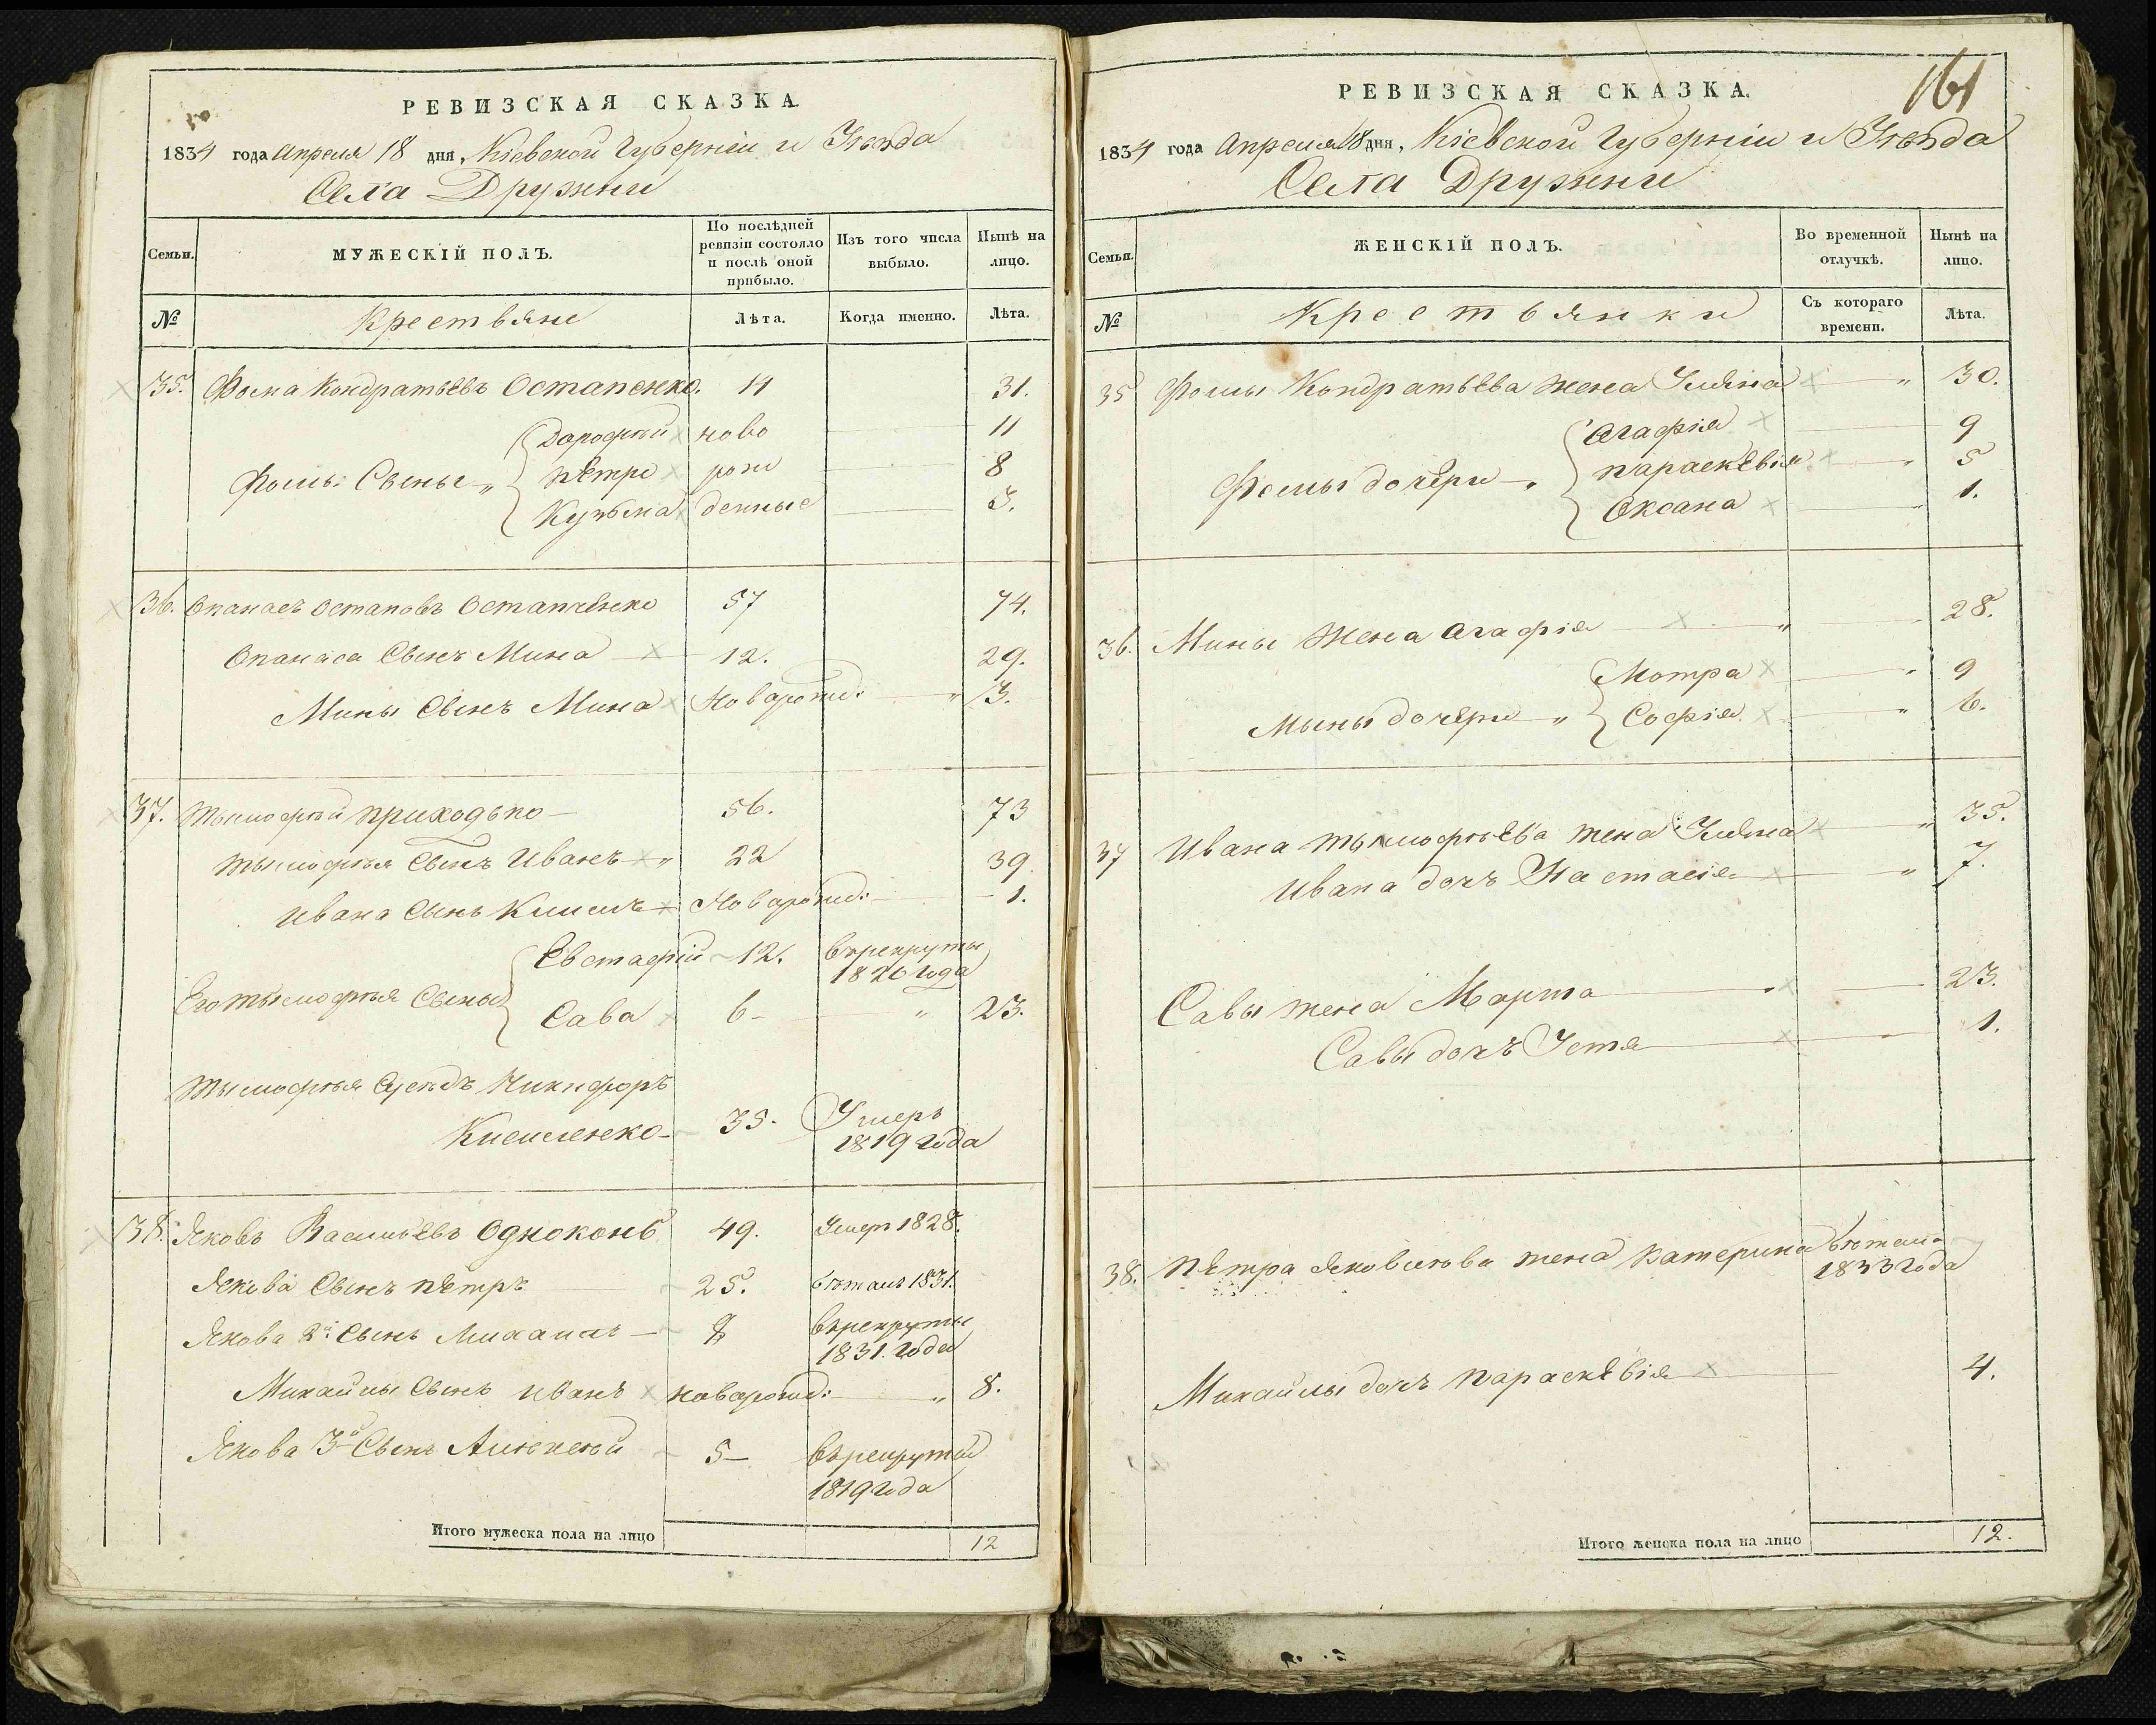 РЕВИЗСКАЯ СКАЗКА.
1834 года Апреля 18 дня, Кіевской Губерніи и Уезда
Села Дружни
Семьи.
МУЖЕСКІЙ ПОЛЪ.
По послѣдней ревизіи состояло и послѣ оной прибыло.
Изъ того числа выбыло.
Нынѣ на лицо.
№
Крестьяне
Лѣта.
Когда именно.
Лѣта.
35. Фома Кондратьевъ Остапенко. 14 31.
Дорофей ново 11
Фомы Сыны „ Петро рож 8
Кузьма денные 3.
36. Опанасъ Остаповъ Остапченко 57 74.
Опанаса Сынъ Мина 12. 29.
Мины Сынъ Мина Новорожд: „ 3.
37. Тымофей Приходько 56. 73
Тымофея Сынъ Иванъ „ 22 39.
Ивана Сынъ Климъ Новорожд: 1.
Евстафій 12. Въ рекруты
1820 года
Его Тымофея Сыны
Сава 6 „ 23.
Тымофея Сусѣдъ Никифоръ
35. Умеръ
1819 года
38. Яковъ Васильевъ Одноконь 49. Умер 1828.
Якова Сынъ Петръ 25. бѣжалъ 1831.
Якова 2й Сынъ Михаилъ 8 Въ рекруты
1831. года
Михайлы Сынъ Иванъ новорожд: „ 8.
Якова 3й Сынъ Алексей 5 Въ рекруты
1819 года
Итого мужеска пола на лицо 12
161
РЕВИЗСКАЯ СКАЗКА.
1834 года Апреля 18 дня, Кіевской Губерніи и Уезда
Села Дружни
Семьи.
ЖЕНСКІЙ ПОЛЪ.
Во временной отлучкѣ.
Нынѣ на лицо.
№
Крестьянки
Съ котораго времени.
Лѣта.
35 Фомы Кондратьева жена Уляна „ 30.
Агафія 9
Фомы дочери „ Параскевія „ 5
Оксана „ 1.
36. Мины Жена Агафія „ 28.
Мотра „ 9
Мыны дочери „ Софія „ 6.
37 Ивана Тымофѣева жена Уляна „ 35.
Ивана дочъ Настасія „ 7.
Савы жена Марта 23.
Савы дочъ Устя 1.
38. Петра Яковлева жена Катерина бѣжала
1833 года
Михайлы дочъ Параскевія 4.
Итого женска пола на лицо 12.